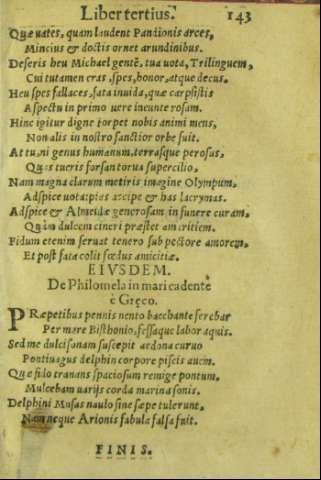 Liber tertius. 143
Quæ uates, quam laudent Pandionis arces,
Mincius & doctis ornet arundinibus.
Deseris heu Michael gentē, tua uota, Trilinguem,
Cui tutamen eras, spes, honor, atque decus.
Heu spes fallaces, fata inuida, quæ carpsistis
Aspectu in primo uere incunte rosam.
Hinc igitur digne torpet nobis animi mens,
Non alis in nostro sanctior orbe fuit.
At tu, ni genus humanum, terrasque perosus,
Quas tueris forsan torua supercilio,
Nam magna clarum metiris imagine Olympum,
Adspice uota: pias accipe & has lacrymas.
Adspice & Almeidæ generosam in funere curam,
Quàm dulcem cineri præstet amicitiem.
Fidum etenim seruat tenero sub pectore amorem,
Et post fata colit fœdus amicitiæ.
EIVSDEM.
De Philomela in mari cadente
è Græco.
PRæpetibus pennis uento bacchante ferebar
Per mare Bisthonio, fessaque labor aquis.
Sed me dulcisonam suscepit aedona curuo
Pontiuagus delphin corpore piscis auem.
Quæ fido tranans spaciosum remige pontum,
Mulcebam uarijs corda marina sonis.
Delphini Musas naulo sine sæpe tulerunt,
Nam neque Arionis fabula falsa fuit.
FINIS.